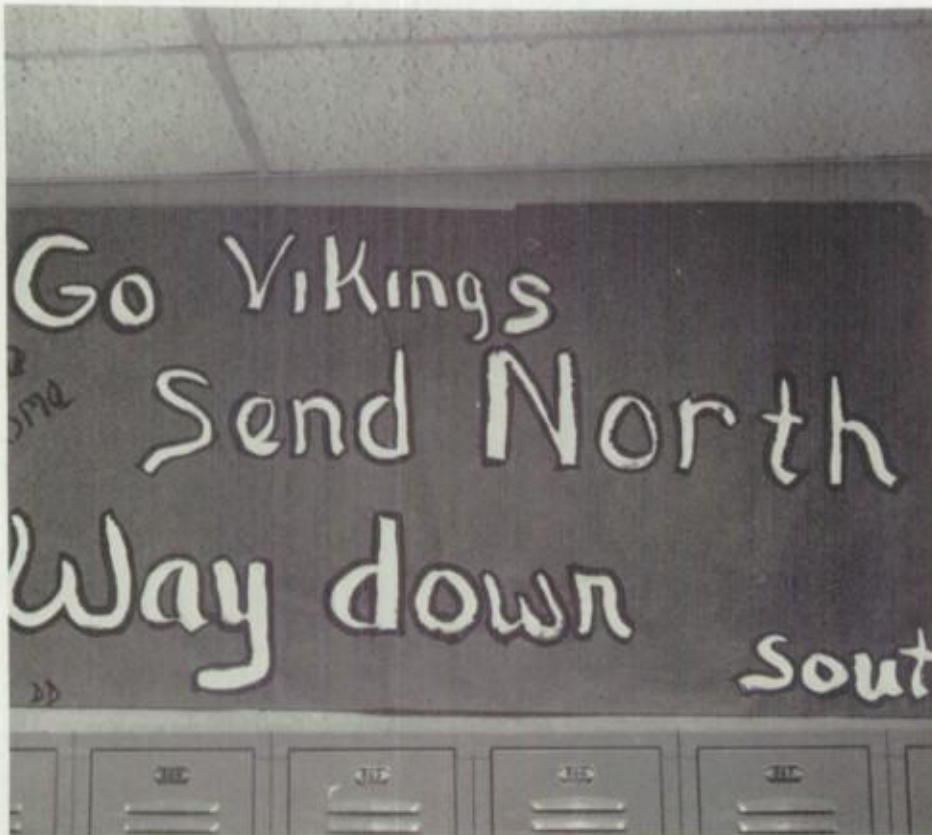 Go Vikings
Send North
Way down
sout
DD